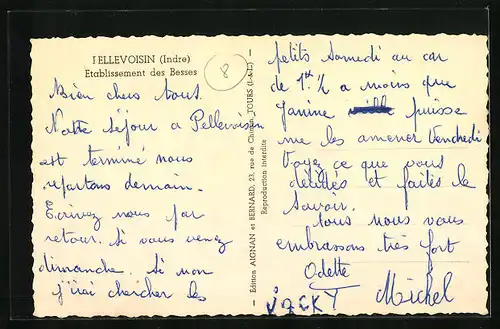 PELLEVOISIN (Indre)
Etablissement des Besses
8
Bien chers tous
Notre séjour a Pellevoisin
est terminé nous
repartons demain.
Ecrivez nous par
retour. Si vous venez
dimanche. Si non
j'irai chercher les
— Edition AIGNAN et BERNARD, 23, rue de Châteaudun TOURS (I.-&-L.) —
Reproduction interdite
petits Samedi au car
de 1h ½ a moins que
Janine puisse
me les amener Vendredi
Voyez ce que vous
décidés et faites le
savoir.
tous nous vous
embrassons très fort
Odette
JACKY Michel